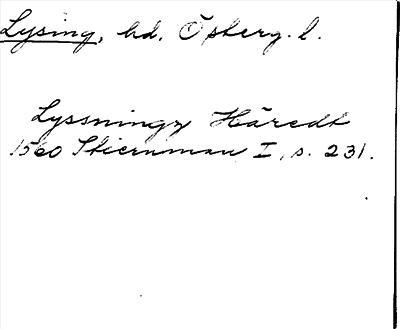 Lysing, hd. Österg. l.
Lyssningz Häredt
1560 Stiernman I, s. 231.